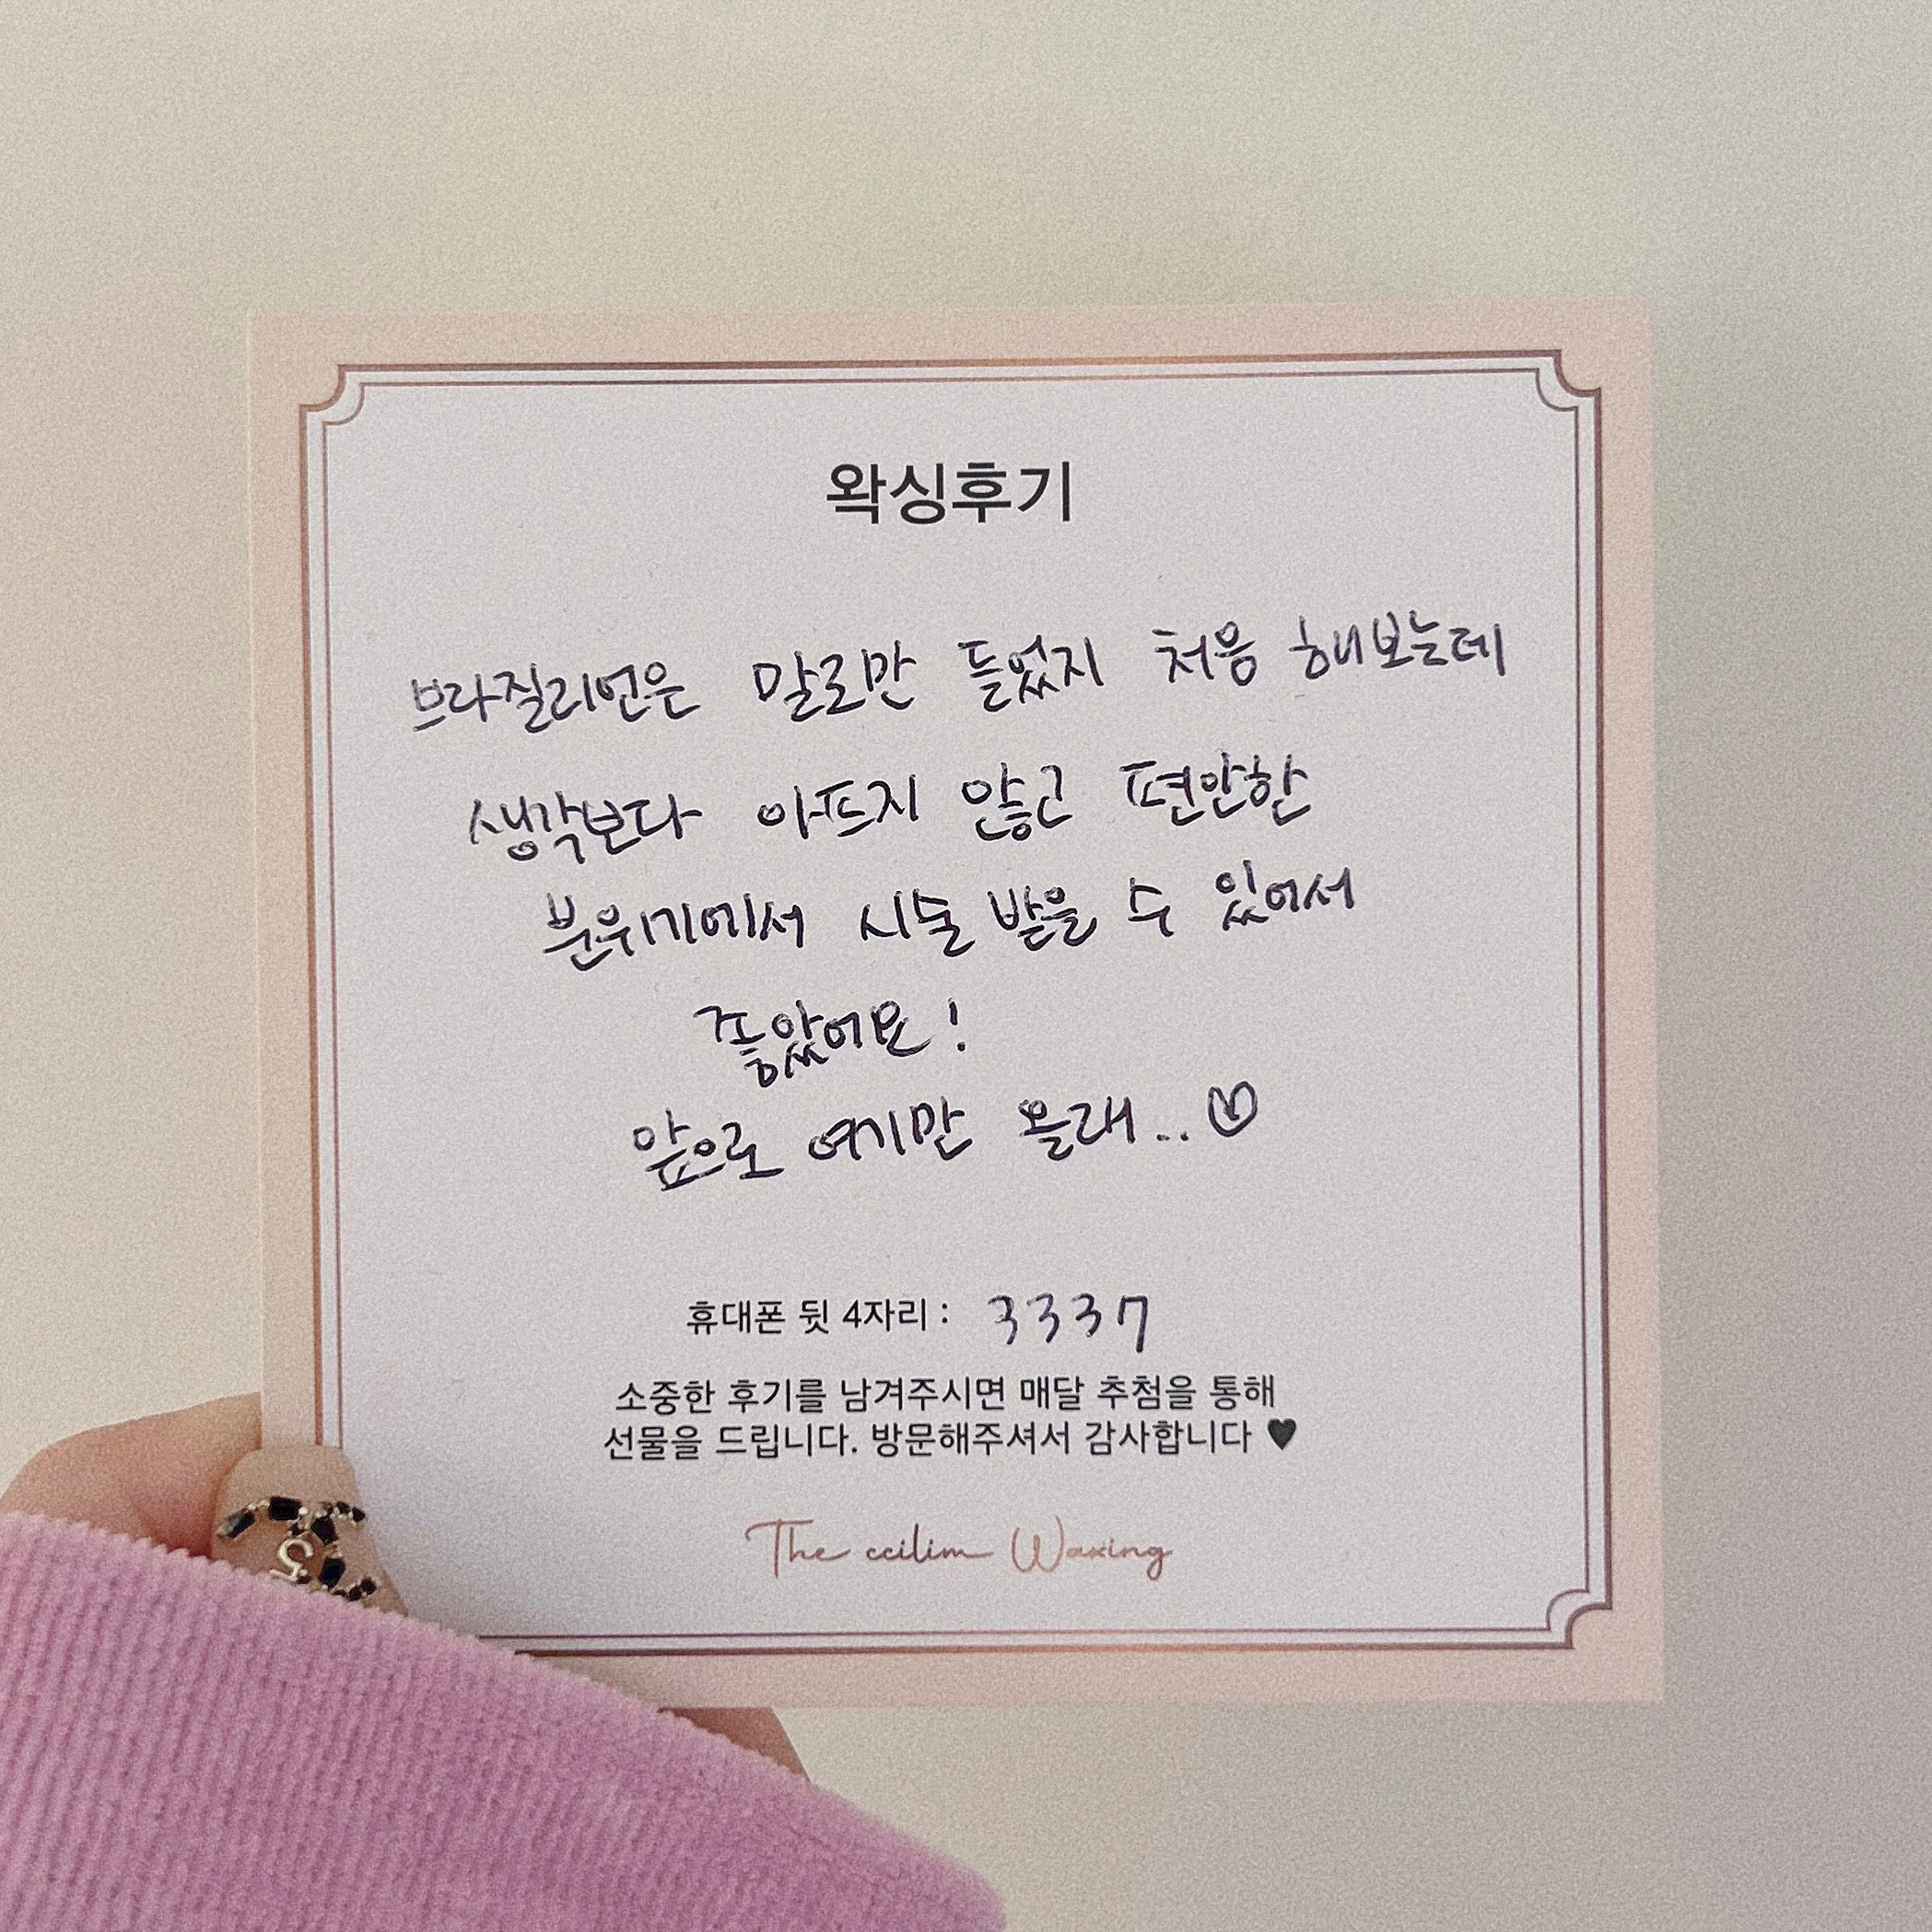 왁싱후기
브라질리언은 말로만 들었지 처음 해보는데
생각보다 아프지 않고 편안한
분위기에서 시술 받을 수 있어서
좋았어요!
앞으로 여기만 올래.. ♡
휴대폰 뒷 4자리 : 3337
소중한 후기를 남겨주시면 매달 추첨을 통해
선물을 드립니다. 방문해주셔서 감사합니다 ♥
The ccilim Waxing